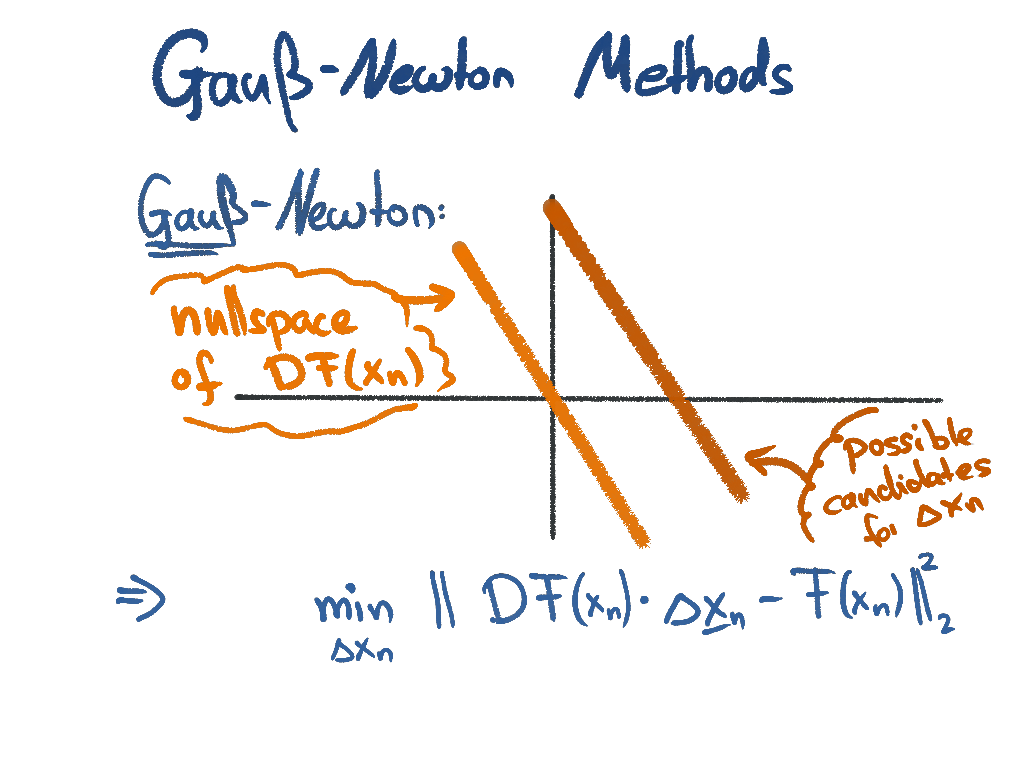 Gauß-Newton Methods
Gauß-Newton:
nullspace
of DF(xn)
possible
candidates
for Δxn
⇒ min ‖ DF(xn) · Δxn - F(xn) ‖²₂
Δxn